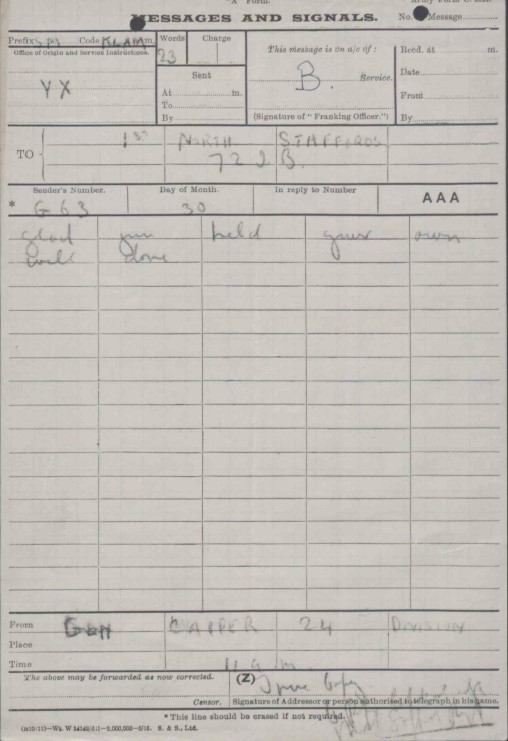 "A" Form.
MESSAGES AND SIGNALS.
No. of Message
Prefix SM Code KLAM m.
Words
Charge
This message is on a/c of:
Recd. at m.
Office of Origin and Service Instructions.
23
Sent
Date
YX
At m.
B. Service.
From
To
By
(Signature of "Franking Officer.")
By
TO
1st NORTH STAFFORDS
72 I B.
Sender's Number.
Day of Month.
In reply to Number
AAA
* G 63
30
glad you held your own
well done
From Gen CAPPER 24 DIVISION
Place
Time 11 a m
The above may be forwarded as now corrected.
(Z)
Censor.
Signature of Addressor or person authorised to telegraph in his name.
* This line should be erased if not required.
S. & B., Ltd.